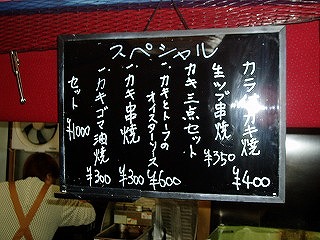 スペシャル
カラ付カキ焼
¥400
生ツブ串焼
¥350
カキ三点セット
・カキとトーフの
オイスターソース
¥600
・カキ串焼
¥300
・カキゴマ油焼
¥300
セット
¥1000